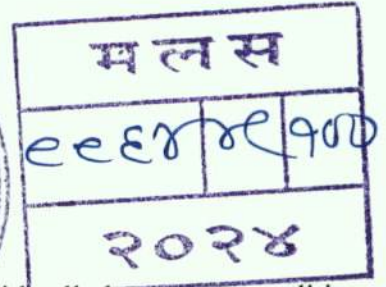 म ल स
९९६४ ४९ १००
२०२४